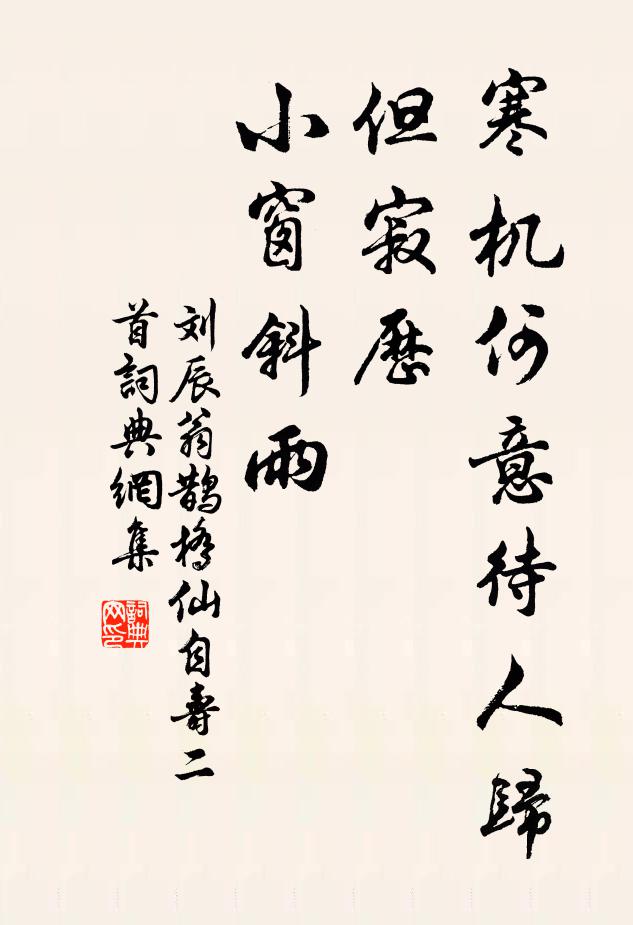 寒机何意待人歸
但寂歷
小窗斜雨
刘辰翁鵲橋仙自壽二
首詞典網集
詞典
网印